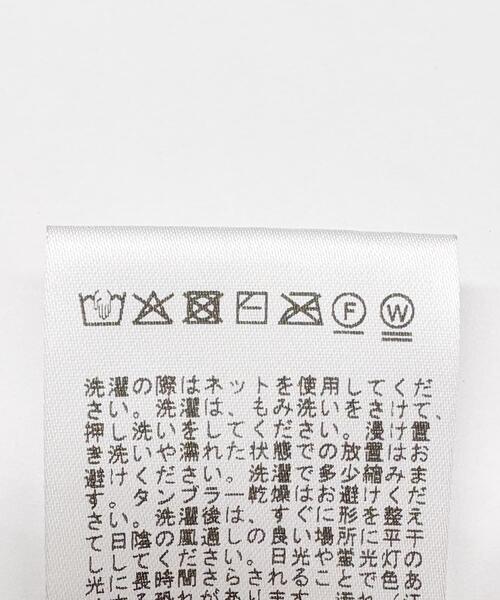 洗濯の際はネットを使用してくだ
さい。洗濯は、もみ洗いをさけて、
押し洗いをしてください。浸け置
き洗いや濡れた状態での放置はお
避けください。洗濯で多少縮みま
す。タンブラー乾燥はお避けくだ
さい。洗濯後はすぐに形を整え
て日陰の風通しの良い場所に平干
してください。日光や蛍光灯の
F
W